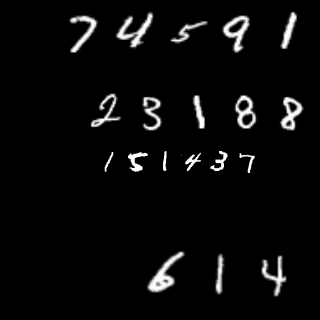 74591
23188
151437
614